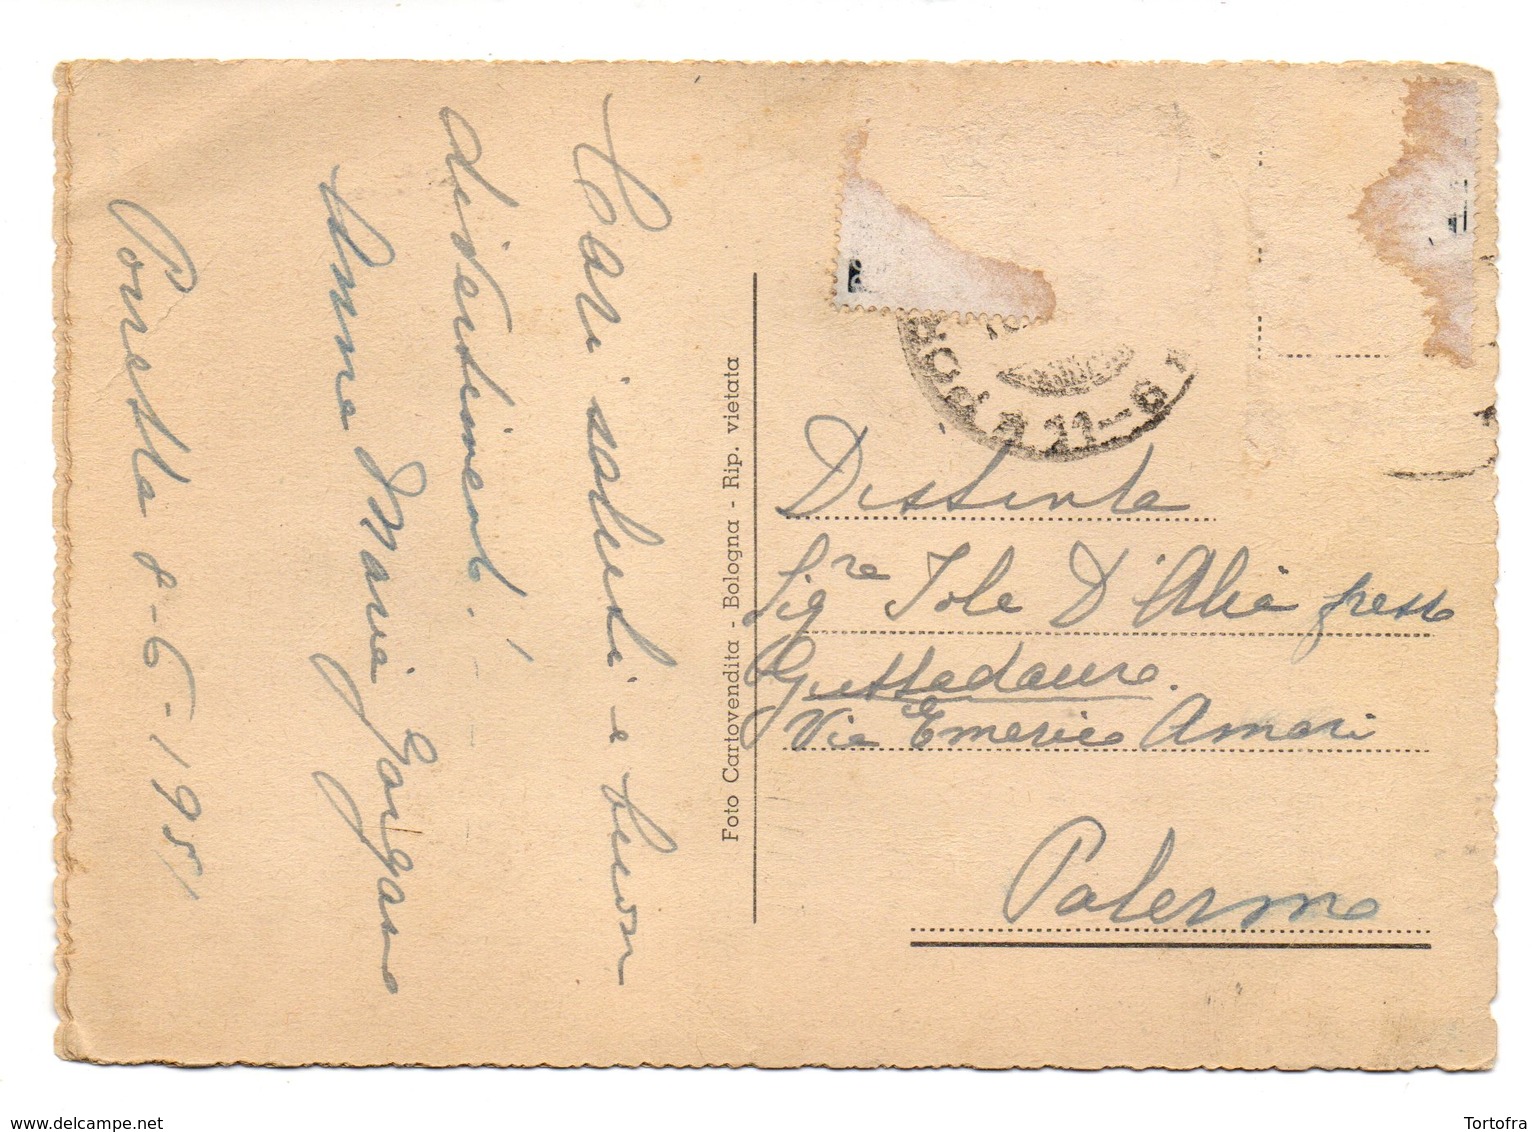 Cari saluti e buoni
divertimenti!
Anna Maria Gorgano
Porretta 8-6-1951
Foto Cartovendita - Bologna - Rip. vietata
11-6
Distinta
Sig.re Iole D'Alia presso
Guttadauro.
Via Emerico Amari
Palermo
www.delcampe.net
Tortofra